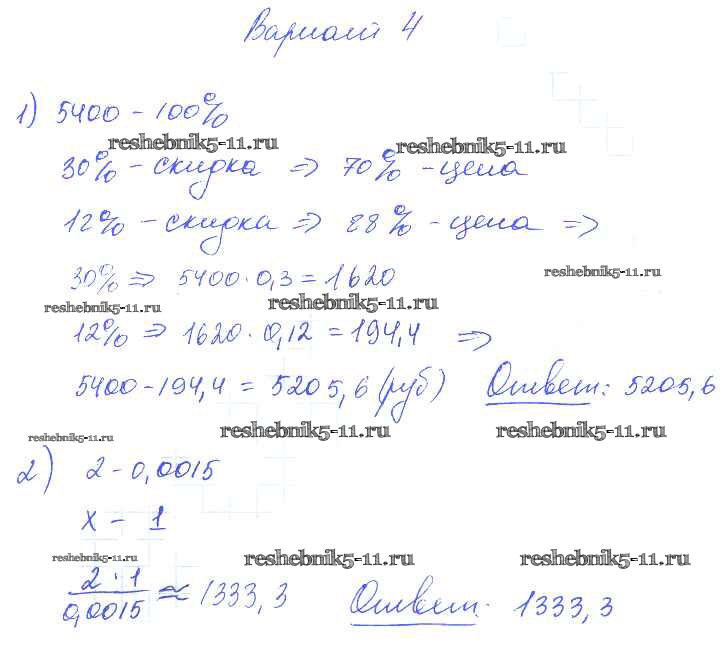 Вариант 4
1) 5400 - 100%
reshebnik5-11.ru
reshebnik5-11.ru
30% - скидка => 70% - цена
12% - скидка => 88% - цена =>
30% => 5400 · 0,3 = 1620
reshebnik5-11.ru
reshebnik5-11.ru
reshebnik5-11.ru
12% => 1620 · 0,12 = 194,4 =>
5400 - 194,4 = 5205,6 (руб) Ответ: 5205,6
reshebnik5-11.ru
reshebnik5-11.ru
reshebnik5-11.ru
2) 2 - 0,0015
x - 1
reshebnik5-11.ru
reshebnik5-11.ru
reshebnik5-11.ru
2 · 1
0,0015 ≈ 1333,3 Ответ: 1333,3